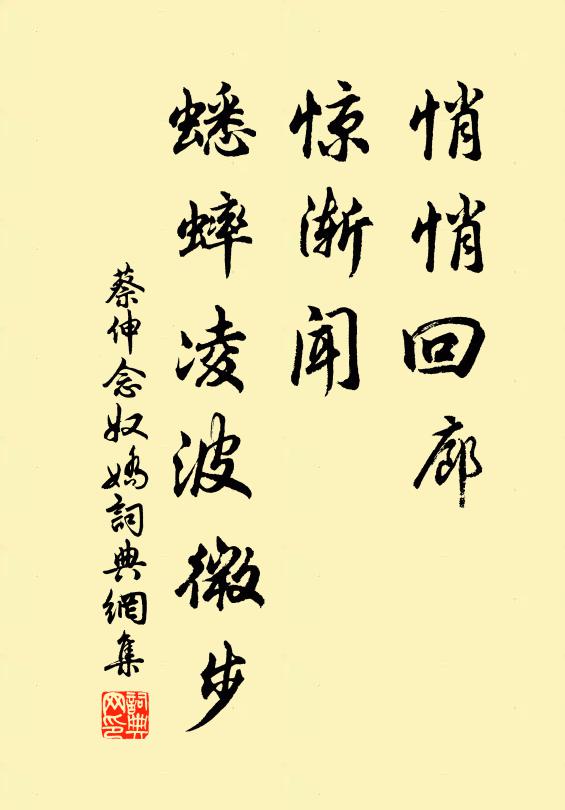 悄悄回廊
惊渐闻
蟋蟀凌波微步
蔡伸念奴嬌詞典網集
詞典网印